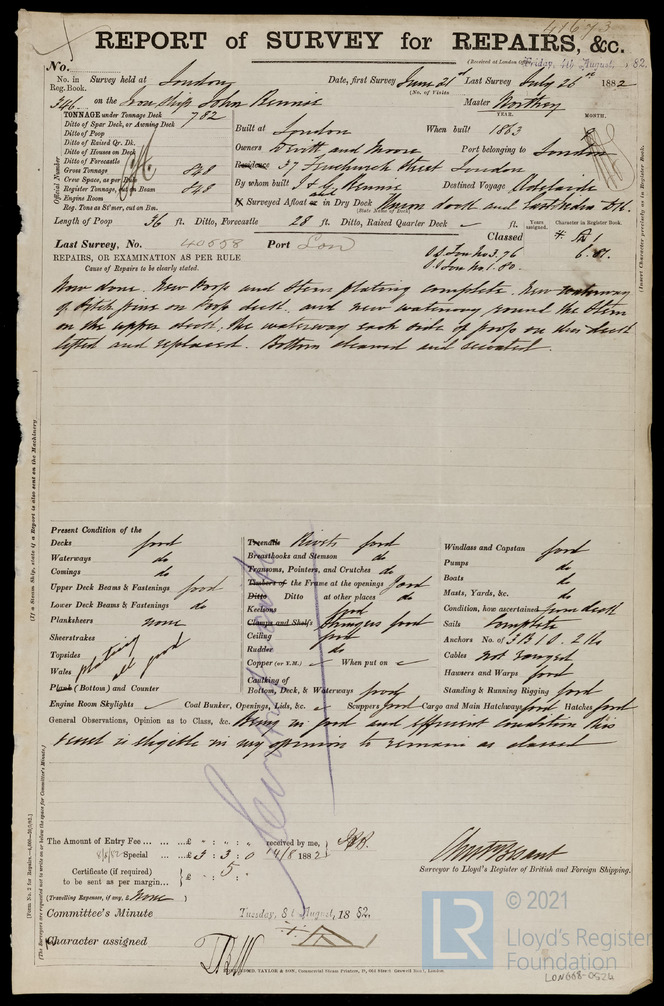 41673
REPORT of SURVEY for REPAIRS, &c.
No.
(Received at London Friday, 4th August, 1882.
No. in Reg. Book. Survey held at London Date, first Survey June 21st Last Survey July 26th 1882
(No. of Visits
346 on the Iron Ship John Rennie Master Worthey
TONNAGE under Tonnage Deck 782
Ditto of Spar Deck, or Awning Deck
Ditto of Poop
Ditto of Raised Qr. Dk.
Ditto of Houses on Deck
Ditto of Forecastle
Gross Tonnage 848
Crew Space, as per Rule
Register Tonnage, cut on Beam 848
Engine Room
Reg. Tons as St'mer, cut on Bm.
Official Number
YEAR. MONTH.
Built at London When built 1863
Owners Devitt and Moore Port belonging to London
Residence 37 Fenchurch Street London
By whom built J & G Rennie Destined Voyage Adelaide
If Surveyed Afloat or in Dry Dock Union dock and East India Dk.
(State Name of Dock)
Length of Poop 36 ft. Ditto, Forecastle 28 ft. Ditto, Raised Quarter Deck ft.
Years assigned. Character in Register Book.
(Insert Character precisely as in Register Book.
Last Survey, No. 40558 Port Lon Classed
6.81.
S.S. Lon No3.76
S.S. Lon No1.80.
REPAIRS, OR EXAMINATION AS PER RULE
Cause of Repairs to be clearly stated.
Now done. New Poop and Stem plating complete. New waterway
of Pitch pine on Poop deck, and new waterway round the Stem
on the upper deck; the waterway each side of poop on Main deck
lifted and replaced. Bottom cleaned and recoated.
(If a Steam Ship, state if a Report is also sent on the Machinery
Present Condition of the
Decks good
Waterways do
Comings do
Upper Deck Beams & Fastenings good
Lower Deck Beams & Fastenings do
Planksheers none
Sheerstrakes
Topsides
Wales
plating all good
Plank (Bottom) and Counter
Treenails Rivets good
Breasthooks and Stemson do
Transoms, Pointers, and Crutches do
Timbers of the Frame at the openings good
Ditto Ditto at other places do
Keelsons good
Clamps and Shelfs Stringers good
Ceiling good
Rudder do
Copper (or Y.M.) When put on
Caulking of
Bottom, Deck, & Waterways good
Windlass and Capstan good
Pumps do
Boats do
Masts, Yards, &c. do
Condition, how ascertained from deck
Sails complete
Anchors No. of 3 B 1 0. 2 Ks
Cables Not ranged
Hawsers and Warps good
Standing & Running Rigging good
Engine Room Skylights Coal Bunker, Openings, Lids, &c. Scuppers good Cargo and Main Hatchways good Hatches good
General Observations, Opinion as to Class, &c. Being in good and efficient condition this
vessel is eligible in my opinion to remain as classed
The Amount of Entry Fee ... ... ...£ : : received by me,
Special ... ...£ 3 : 3 : 0 4/8 1882
Certificate (if required) to be sent as per margin... £ : 5 :
(Travelling Expenses, if any, £ None )
Surveyor to Lloyd's Register of British and Foreign Shipping.
Committee's Minute Tuesday, 8th August, 1882.
Character assigned
[Form No. 2 for Repairs.
(The Surveyors are requested not to write on or below the space for Committee's Minute.)
TAYLOR & SON, Commercial Steam Printers, London.
LR © 2021
Lloyd's Register
Foundation
LON668-0526